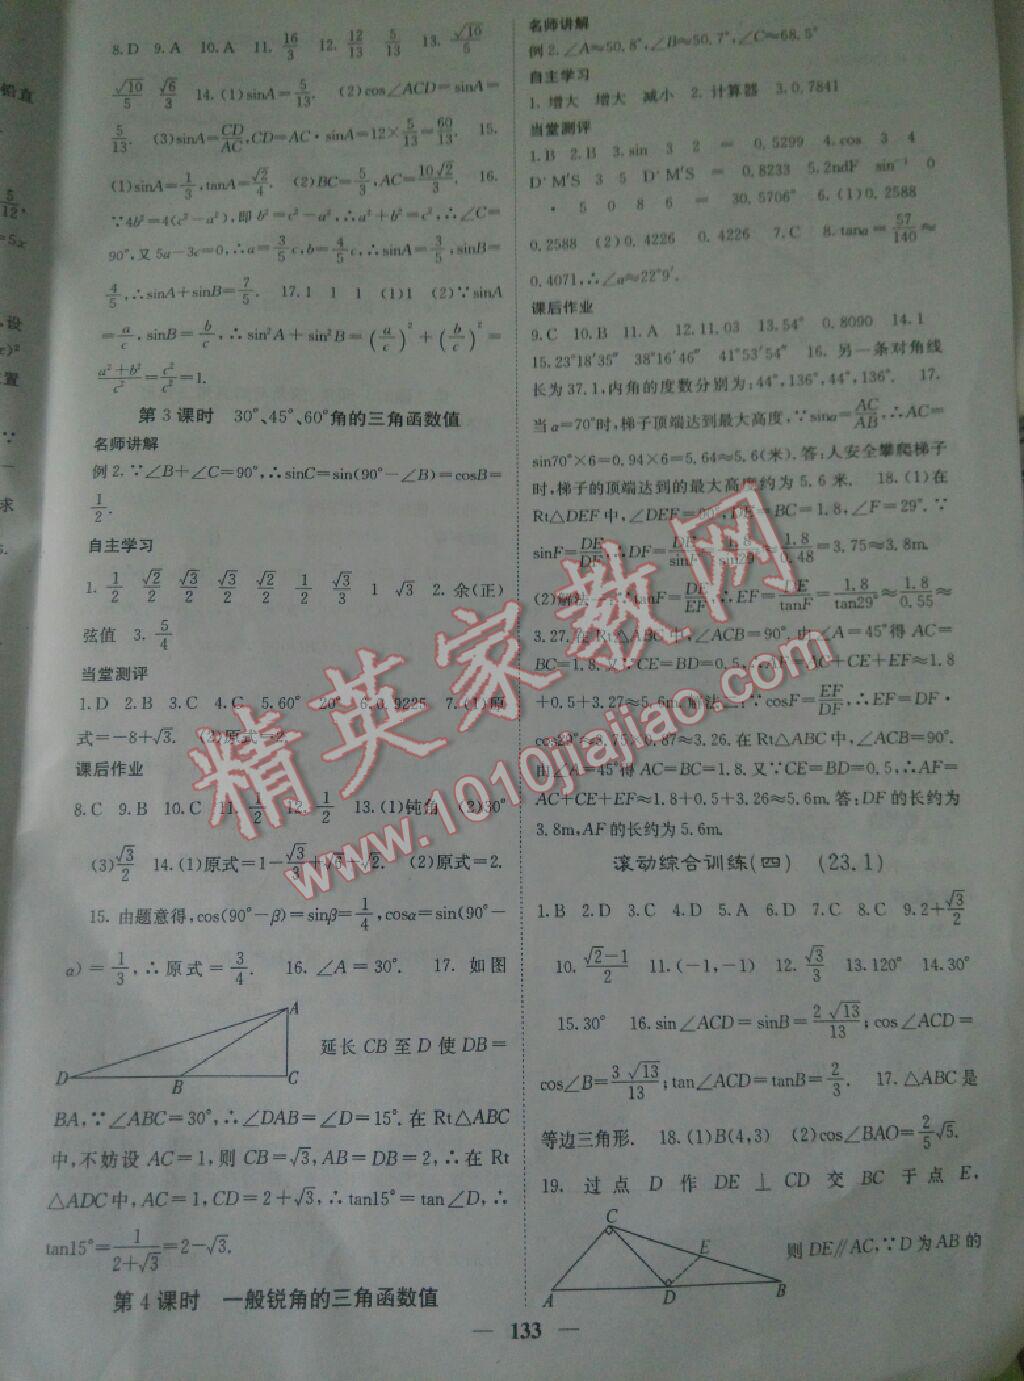 8.D 9.A 10.A 11.16/3 12.12/13 5/13 13.√10/5
√10/5 √6/3 14.(1)sinA=5/13. (2)cos∠ACD=sinA=
5/13. (3)sinA=CD/AC,CD=AC·sinA=12×5/13=60/13. 15.
(1)sinA=1/3,tanA=√2/4. (2)BC=5/3,AC=10√2/3. 16.
∵4b²=4(c²-a²),即b²=c²-a²,∴a²+b²=c²,∴∠C=
90°,又5a-3c=0,∴a=3/5c,b=4/5c,∴sinA=3/5,sinB=
4/5,∴sinA+sinB=7/5. 17.1 1 1 (1)1 (2)∵sinA
=a/c,sinB=b/c,∴sin²A+sin²B=(a/c)²+(b/c)²=
(a²+b²)/c²=c²/c²=1.
第3课时 30°、45°、60°角的三角函数值
名师讲解
例2.∵∠B+∠C=90°,∴sinC=sin(90°-∠B)=cosB=
1/2.
自主学习
1.1/2 √2/2 √3/2 √3/2 √2/2 1/2 √3/3 1 √3 2.余(正)
弦值 3.5/4
当堂测评
1.D 2.B 3.C 4.C 5.60° 20° 6.0.9225 7.(1)原
式=-8+√3. (2)原式=2.
课后作业
8.C 9.B 10.C 11.1/2 12.1/2 13.(1)钝角 (2)30°
(3)√3/2 14.(1)原式=1-√3/3+√3+√2. (2)原式=2.
15.由题意得,cos(90°-β)=sinβ=1/4,cosα=sin(90°-
α)=1/3,∴原式=3/4. 16.∠A=30°. 17.如图
A
D B C
延长CB至D使DB=
BA,∵∠ABC=30°,∴∠DAB=∠D=15°.在Rt△ABC
中,不妨设AC=1,则CB=√3,AB=DB=2,∴在Rt
△ADC中,AC=1,CD=2+√3,∴tan15°=tan∠D,∴
tan15°=1/(2+√3)=2-√3.
第4课时 一般锐角的三角函数值
名师讲解
例2.∠A≈50.8°,∠B≈50.7°,∠C≈68.5°
自主学习
1.增大 增大 减小 2.计算器 3.0.7841
当堂测评
1.B 2.B 3.sin 3 2 = 0.5299 4.cos 3 4
D°M′S 3 5 D°M′S = 0.8233 5.2ndF sin⁻¹ 0
· 5 0 8 6 = 30.5706° 6.(1)0.2588
0.2588 (2)0.4226 0.4226 7.C 8.tanα=57/140≈
0.4071,∴∠α≈22°9′.
课后作业
9.C 10.B 11.A 12.11.03 13.54° 0.8090 14.1
15.23°18′35″ 38°16′46″ 41°53′54″ 16.另一条对角线
长为37.1,内角的度数分别为:44°,136°,44°,136°. 17.
当α=70°时,梯子顶端达到最大高度,∵sinα=AC/AB,∴AC=
sin70°×6=0.94×6=5.64≈5.6(米).答:人安全攀爬梯子
时,梯子的顶端达到的最大高度约为5.6米. 18.(1)在
Rt△DEF中,∠DEF=90°,DE=BC=1.8,∠F=29°.∵
sinF=DE/DF,∴DF=DE/sinF=1.8/sin29°≈1.8/0.48=3.75≈3.8m.
(2)解法一:∵tanF=DE/EF,∴EF=DE/tanF=1.8/tan29°≈1.8/0.55≈
3.27.在Rt△ABC中,∠ACB=90°.由∠A=45°得AC=
BC=1.8.又∵CE=BD=0.5,∴AF=AC+CE+EF≈1.8
+0.5+3.27≈5.6m.解法二:∵cosF=EF/DF,∴EF=DF·
cos29°≈3.75×0.87≈3.26.在Rt△ABC中,∠ACB=90°.
由∠A=45°得AC=BC=1.8.又∵CE=BD=0.5,∴AF=
AC+CE+EF≈1.8+0.5+3.26≈5.6m.答:DF的长约为
3.8m,AF的长约为5.6m.
滚动综合训练(四) (23.1)
1.B 2.D 3.C 4.D 5.A 6.D 7.C 8.C 9.2+√3/2
10.(√2-1)/2 11.(-1,-1) 12.√3/3 13.120° 14.30°
15.30° 16.sin∠ACD=sinB=2√13/13;cos∠ACD=
cos∠B=3√13/13;tan∠ACD=tanB=2/3. 17.△ABC是
等边三角形. 18.(1)B(4,3) (2)cos∠BAO=2/5√5.
19.过点D作DE⊥CD交BC于点E,
C
E
A D B
则DE∥AC,∵D为AB的
— 133 —
铅直
5/12,
=5x
设
置
∵
求
精英家教网
www.1010jiajiao.com